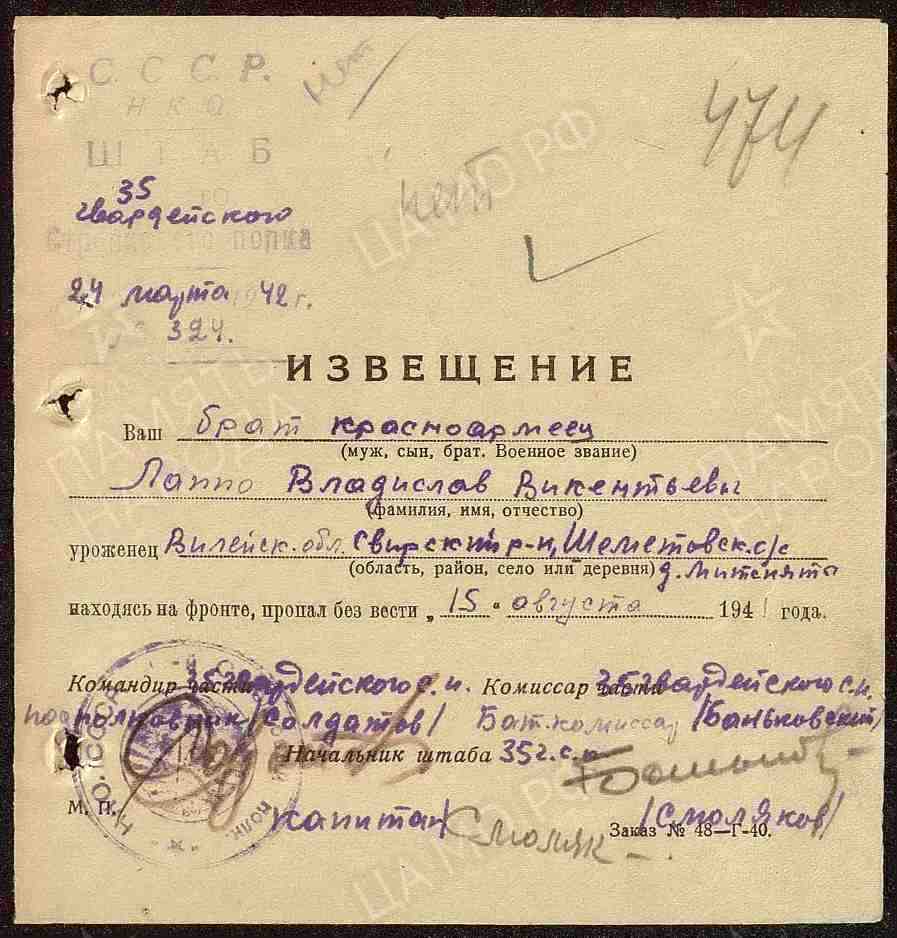 С. С. С. Р.
нет
Н К О
474
Ш Т А Б
35
гвардейского
нет
Стрелкового полка
24 марта 1942 г.
№ 324.
ИЗВЕЩЕНИЕ
Ваш брат красноармеец
(муж, сын, брат. Военное звание)
Лаппо Владислав Викентьевы
(фамилия, имя, отчество)
уроженец Вилейск. обл. Свирский р-н, Шеметовск. с/с
(область, район, село или деревня) д. Митсняты
находясь на фронте, пропал без вести „ 15 “ августа 1941 года.
Командир части 35 гвардейского с. п. Комиссар части 35 гвардейского с. п.
подполковник /Солдатов/ Бат. комиссар /Баньковский/
Начальник штаба 35 г. с. п.
М. П. капитан Смоляк /Смоляков/
Заказ № 48—Г-40.
ЦАМО РФ
ПАМЯТЬ НАРОДА